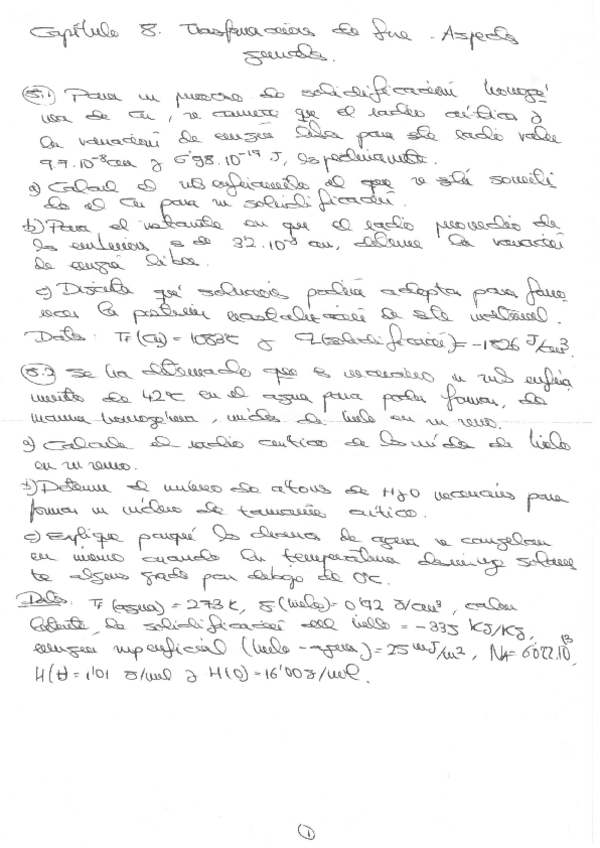 Capítulo 8. Transformaciones de fase. Aspectos
generales.
8.1 Para un proceso de solidificación homogé
nea de Cu, se conoce que el radio crítico y
la variación de energía libre para este radio valen
9'9.10⁻⁸ cm y 6'98.10⁻¹⁹ J, respectivamente.
a) Calcula el subenfriamiento al que se está someti
do el Cu para su solidificación.
b) Para el instante en que el radio promedio de
los embriones es de 32.10⁻⁸ cm, determine la variación
de energía libre.
c) Discuta qué soluciones podría adoptar para favo
recer la policristalización de este material.
Datos: Tf (Cu) = 1083ºC y (solidificación) = -1826 J/cm³.
8.2 Se ha determinado que es necesario un subenfria
miento de 42ºC en el agua para poder formar, de
manera homogénea, núcleos de hielo en su seno.
a) Calcule el radio crítico de los núcleos de hielo
en su seno.
b) Determine el número de átomos de H₂O necesarios para
formar un núcleo de tamaño crítico.
c) Explique porqué los charcos de agua se congelan
en invierno cuando la temperatura disminuye solamen
te algún grado por debajo de 0ºC.
Datos: Tf (agua) = 273 K, (hielo) = 0'92 g/cm³, calor
latente de solidificación del hielo = -335 KJ/Kg,
energía superficial (hielo-agua) = 25 mJ/m², NA = 6'022.10²³,
M(H) = 1'01 g/mol y M(O) = 16'00 g/mol.
1